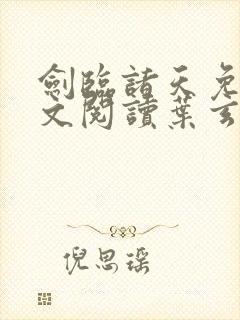 劍臨諸天免
文閱讀葉玄
倪思瑤